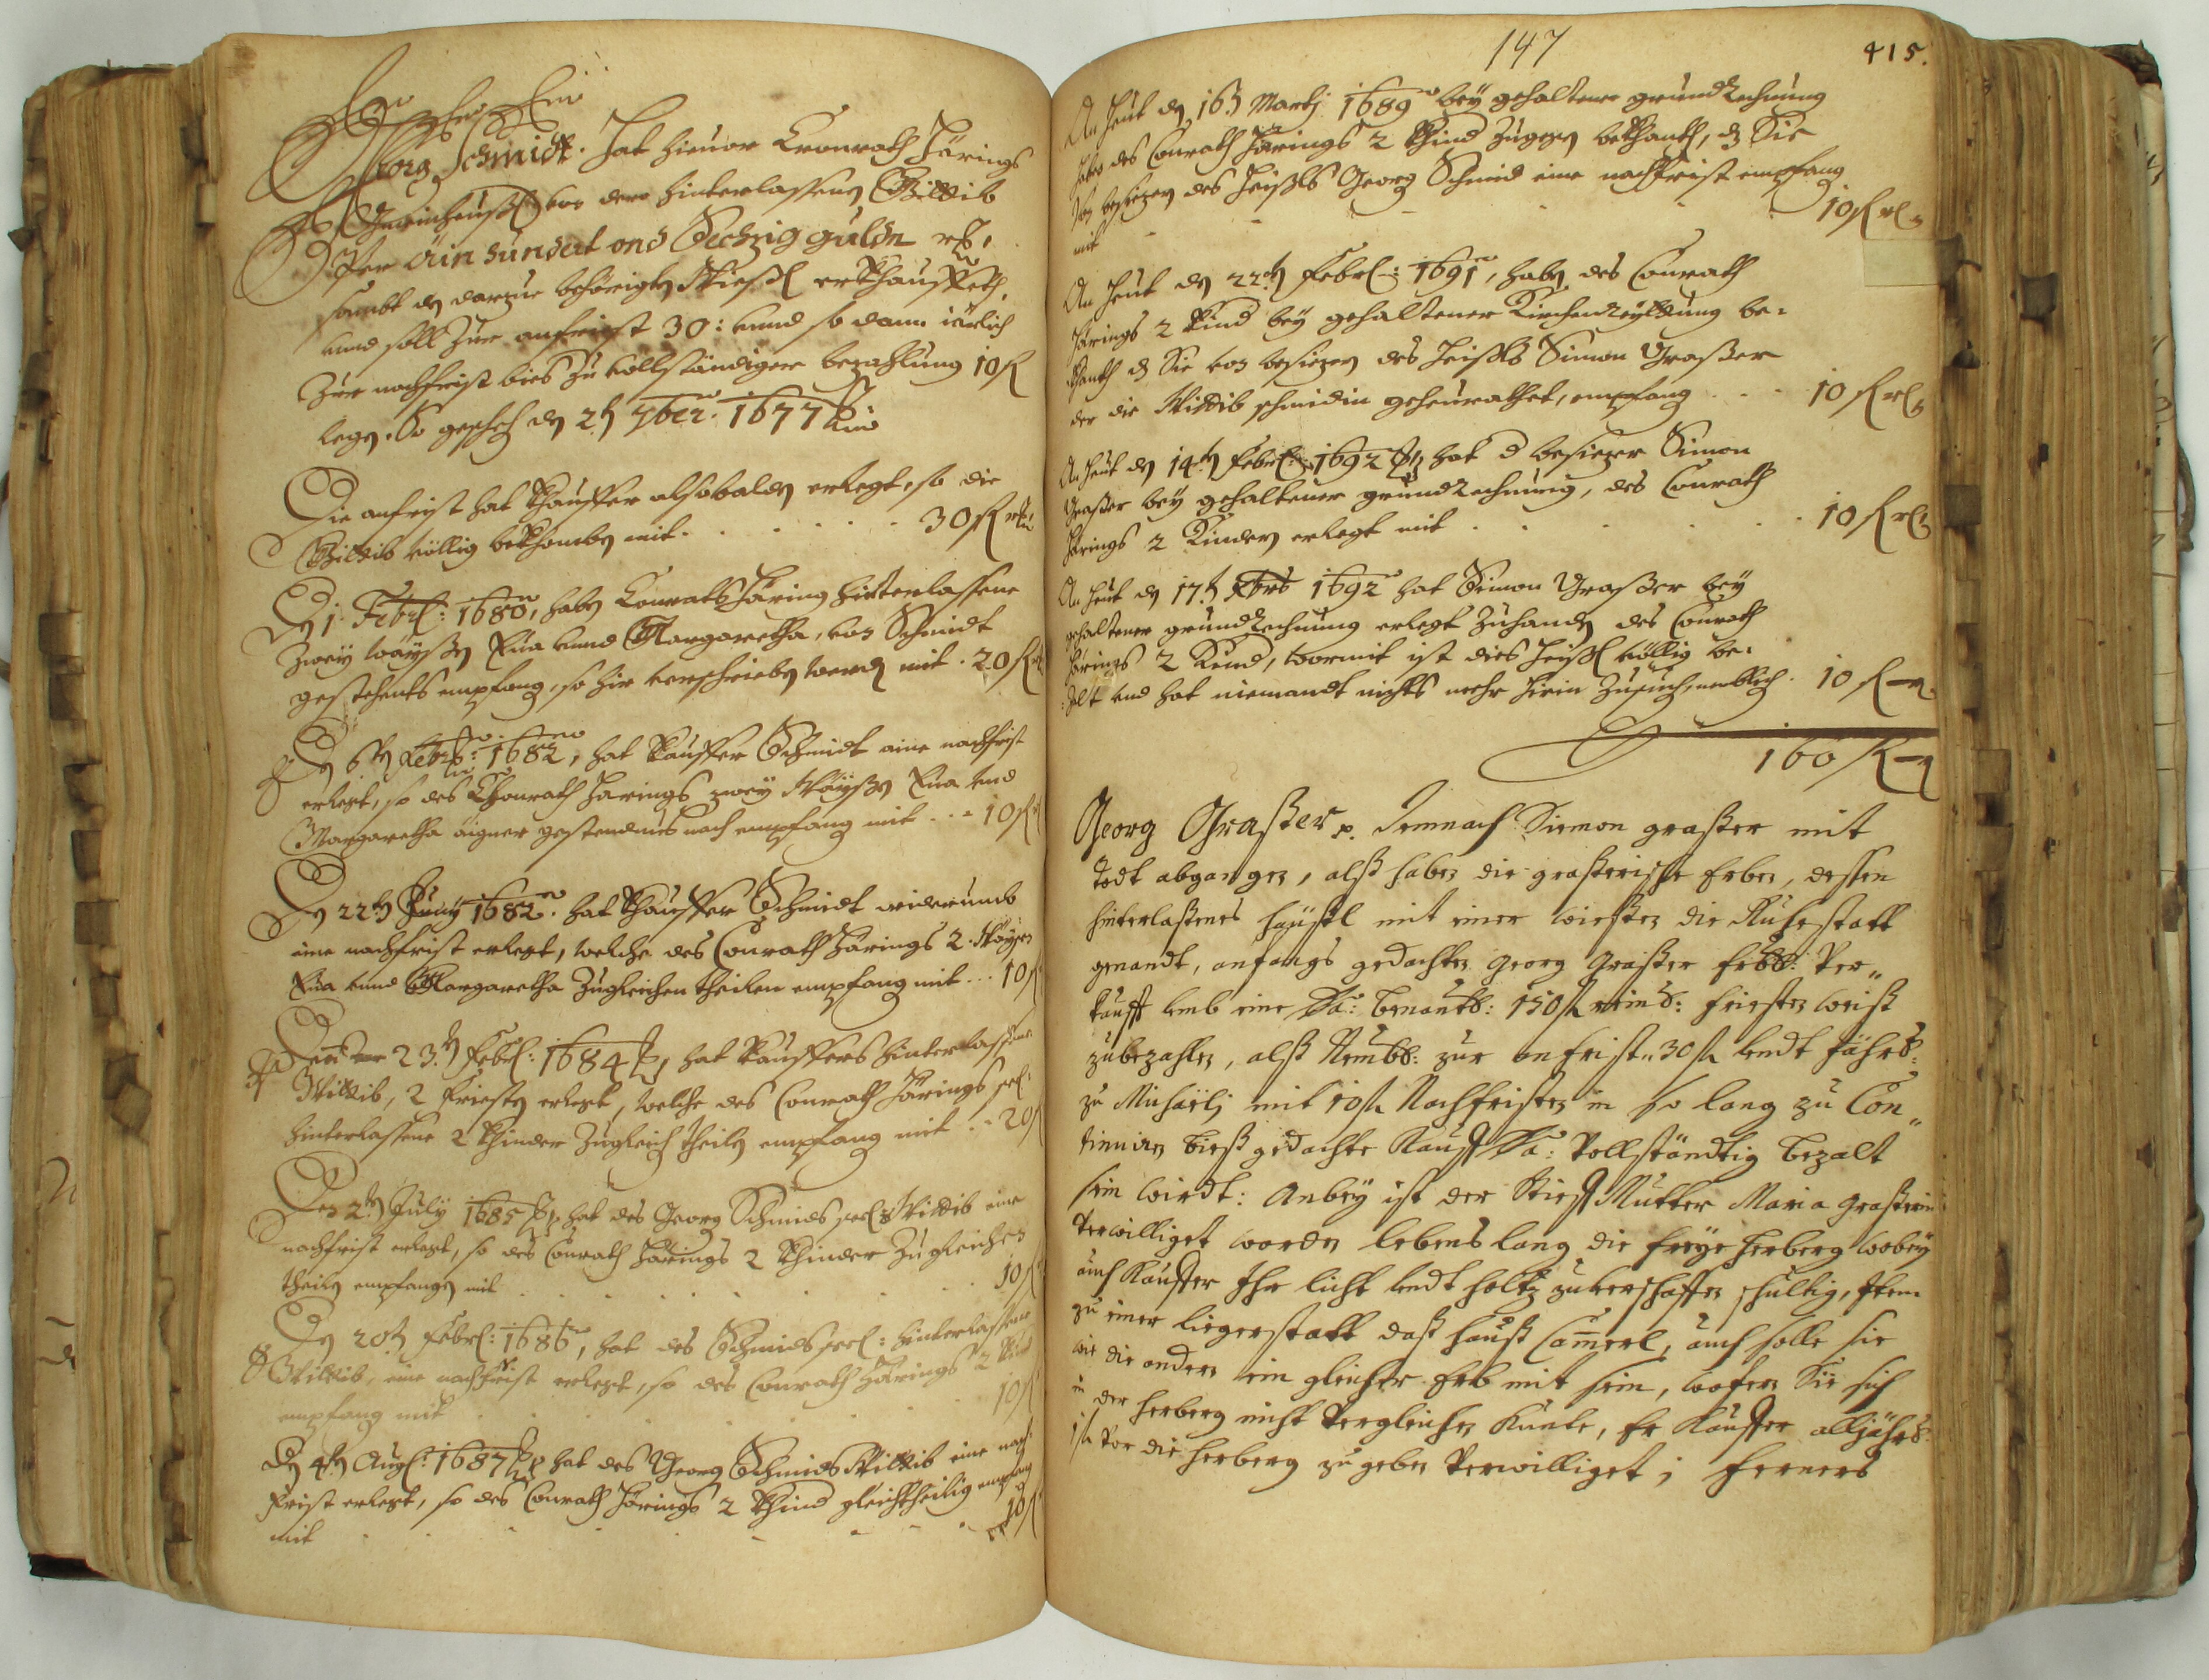 Georg Schmidt. Hat hieuor Conrath Härings
Gmainheußl von dero hinterlassenen Wittib
Per Ain hundert vnd Sechzig guldn
sambt dn darzue behörigen Wießl erkhaufft,
vnnd soll zur anfrist 30: vnnd so dann iärlich
Zur nachfrist bies zu vollständiger bezahlung 10 fl
legen. So geschehen dn 2tn 7ber: 1677
Die anfrist hat Khauffer alsobalden erlegt, so die
Wittib völlig bekhomben mit. . . . . 30 fl
Dn 1. Febr: 1680, haben Conrath Häring hinterlassene
Zwey wayßen Eua vnnd Margaretha, von Schmidt
gestehents empfang, so hir verschrieben werdn mit . 20 fl
Dn 6tn Febr: 1682, hat Kauffer Schmidt eine nachfrist
erlegt, so des Chonrath Härings zwey Wayßen Eua vnd
Margaretha aigner gestendnus nach empfang mit . . . 10 fl
Dn 22tn Juny 1682. hat Khauffer Schmidt widerumb
eine nachfrist erlegt, welche des Conrath Härings 2. Wayßen
Eua vnnd Margaretha Zugleichen theilen empfang mit . . . 10 fl
Den 23tn Febr: 1684, hat Kauffers hinterlassene
Wittib, 2 Fristen erlegt, welche des Conrath Härings sel:
hinterlassene 2 Khinder Zugleich theiln empfang mit . . 20 fl
Den 2tn July 1685, hat des Georg Schmids sel: Wittib eine
nachfrist erlegt, so des Conrath Härings 2 Khinder Zugleichen
theiln empfangen mit . . . . . 10 fl
Dn 20tn Febr: 1686, hat des Schmids sel: hinterlassene
Wittib, eine nachfrist erlegt, so des Conrath Härings 2 Kind
empfang mit . . . . . 10 fl
Dn 4tn Aug: 1687 hat des Georg Schmids Wittib eine nach
Frist erlegt, so des Conrath Härings 2 Khind gleichtheilig empfang
mit . . . . . 10 fl
147
415.
An heut dn 16tn Martj 1689 bey gehaltener grundRechnung
haben des Conrath Härings 2 Khind Zugegen bekhanth, dz Sie
von besizern des Heißls Georg Schmid eine nachfrist empfang
mit . . . . . 10 fl
An heut dn 22tn Febr: 1691, haben des Conrath
Härings 2 Kind bey gehaltener KirchenRayttung be-
khanth dz Sie von besizern des Heißls Simon Graßer
der die Wittib schmidin geheurathet, empfang . . . 10 fl
An heut dn 14tn Febr: 1692 hat d besizer Simon
Graßer bey gehaltener grundRechnung, des Conrath
Härings 2 Kindern erlegt mit . . . . . 10 fl
An heut dn 17tn 1692 hat Simon Graßer bey
gehaltener grundRechnung erlegt Zuhanden des Conrath
Härings 2 Kind, wormit ist dies Heißl völlig be-
zalt vnd hat niemandt nichts mehr hirin Zusuchen, nemblich. 10 fl
160 fl
Georg Graßer p. Demnach Siemon graßer mit
todt abgangen, alß haben die graßerische Erben, dessen
hinterlaßenes häußl mit einer wießen die Ruhestatt
genandt, anfangs gedachten Georg Graßer Erbb: Ver„
kaufft vmb eine Sa: benantl: 150 fl reinis: Fristen weiß
zubezahlen, alß Nembl: zur anfrist„ 30 fl vndt Jährl:
zu Michaëlj mit 10 fl Nachfristen in so lang zu Con„
tinuirn bieß gedachte Kauff Sa: Vollständtig bezalt
sein wirdt: Anbey ist der Stieff Mutter Maria Graßerin
verwilliget worden lebenslang die freye Herberg wobey
auch Kauffer Ihr licht vndt holtz zuverschaffen schultig, Item
zu einer liegerstatt daß hauß Camerl, auch solle sie
wie die andern ein gleicher Erb mit sein, wofern Sie sich
in der Herberg nicht vergleichen Kunte, Er Kauffer alljährl:
1 fl vor die Herberg zu geben verwilliget; Ferners